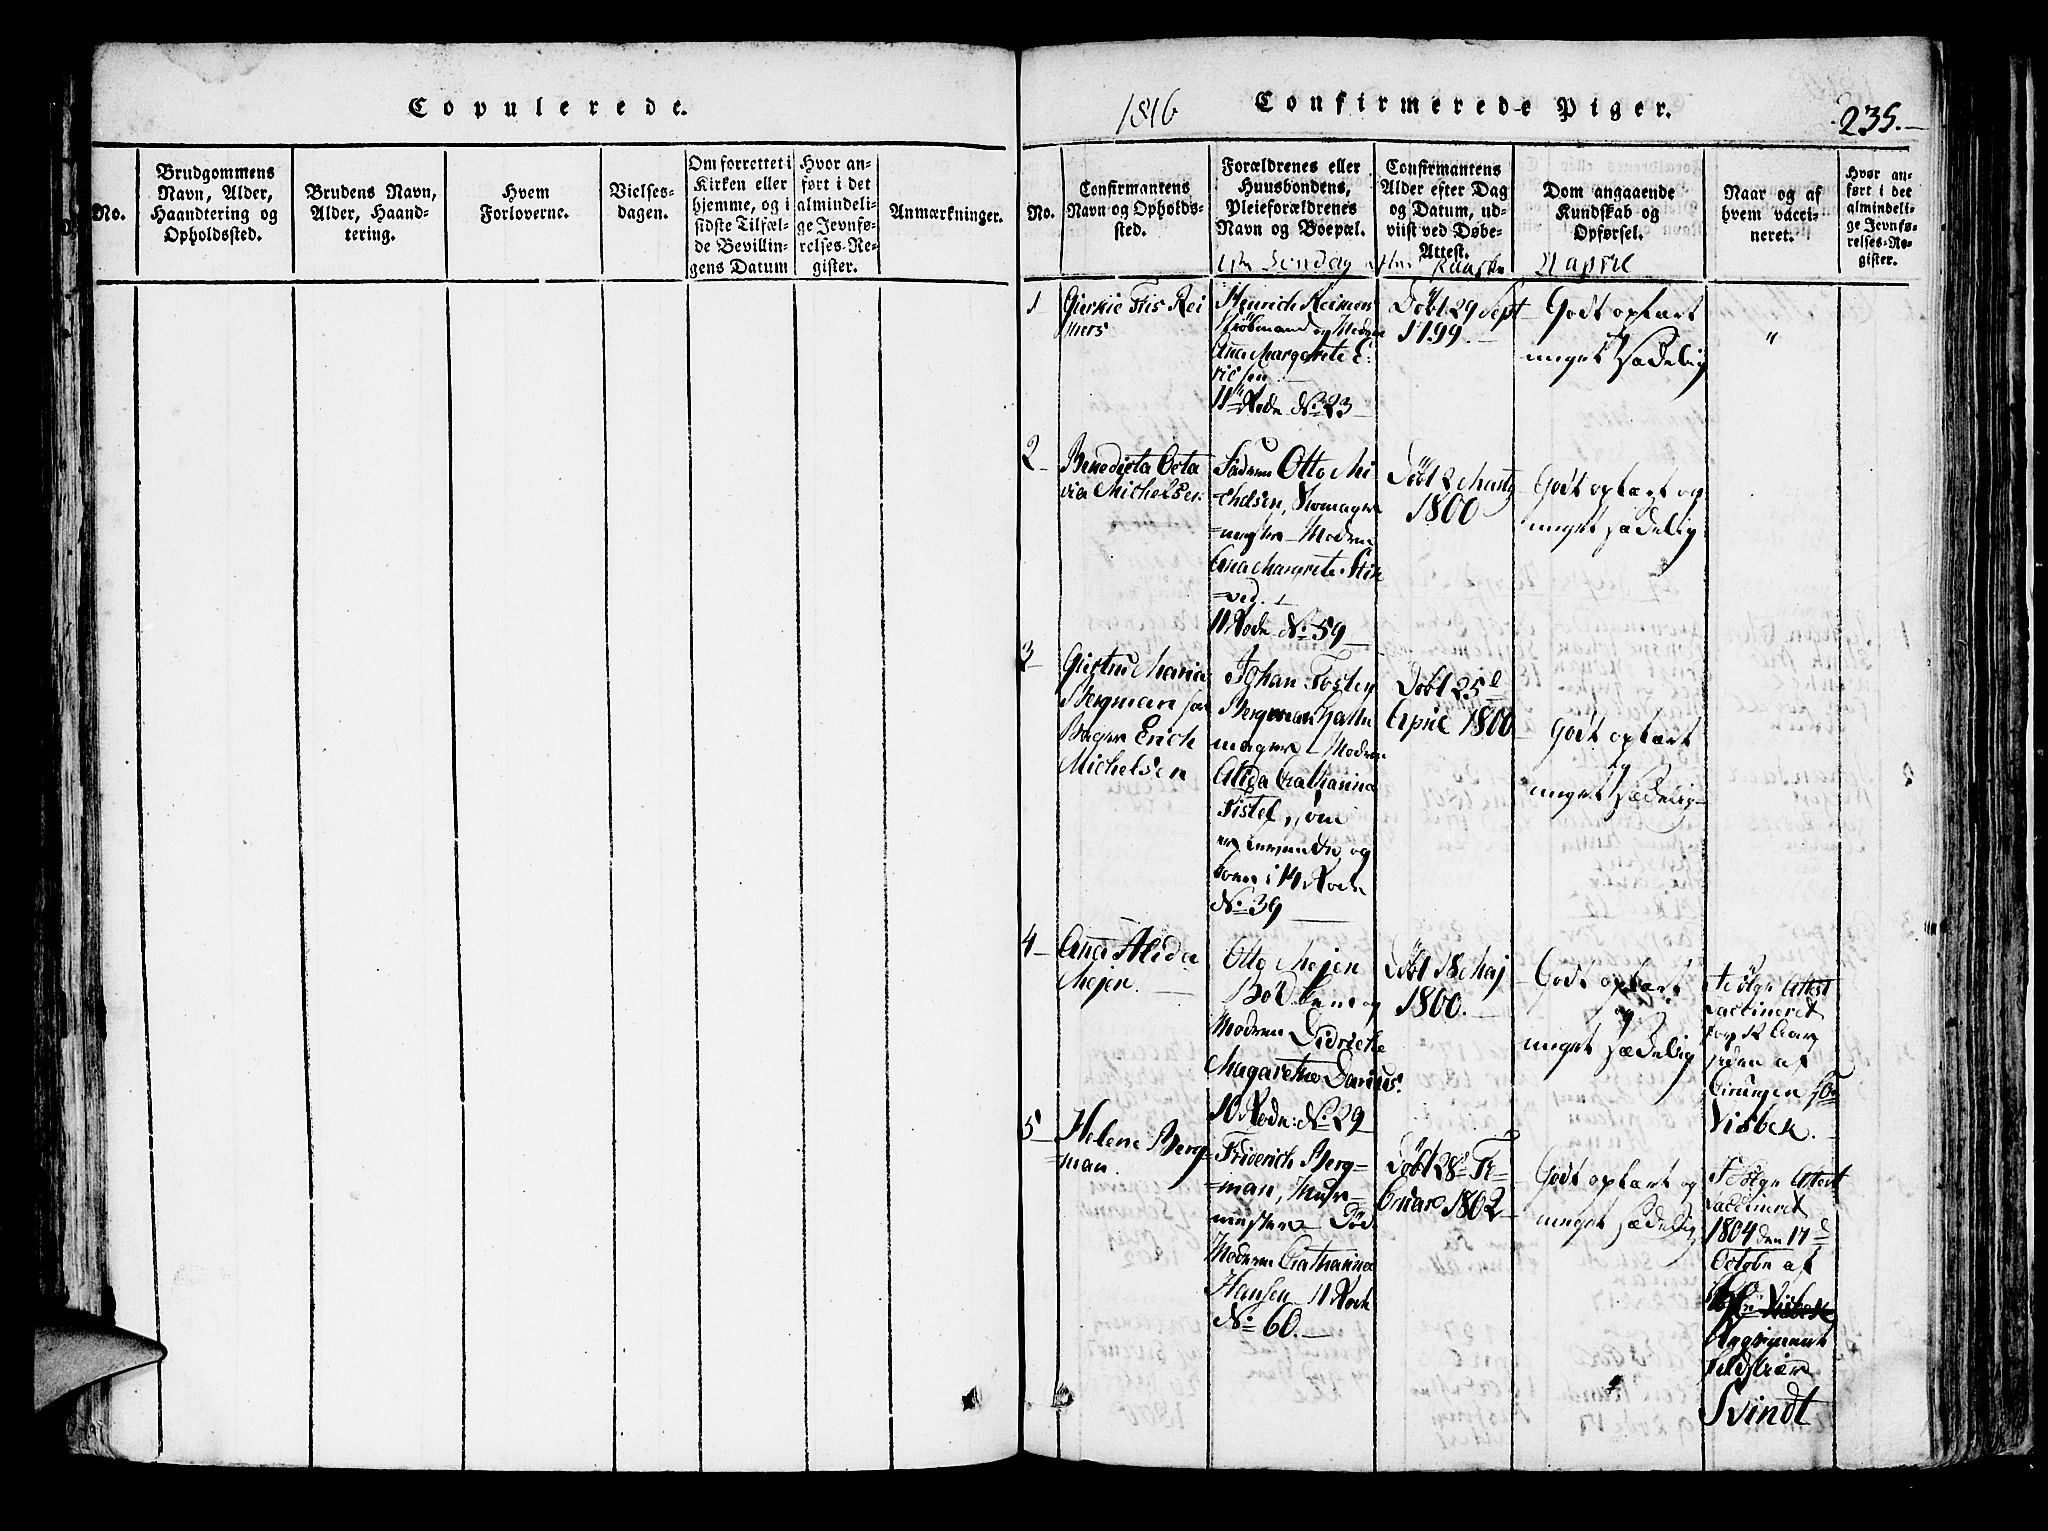 Copulerede.
No.
Brudgommens
Navn, Alder,
Haandtering og
Opholdssted.
Brudens Navn,
Alder, Haand-
tering.
Hvem
Forloverne.
Vielses-
dagen.
Om forrettet i
Kirken eller
hjemme, og i
sidste Tilfæl-
de Bevillin-
gens Datum
Hvor an-
ført i det
almindeli-
ge Jevnfø-
relses-Re-
gister.
Anmærkninger.
1816
Confirmerede Piger.
235.
No.
Confirmantens
Navn og Opholds-
sted.
Forældrenes eller
Huusbondens,
Pleieforældrenes
Navn og Boepæl.
Confirmantens
Alder efter Dag
og Datum, ud-
viist ved Døbe-
Attest.
Dom angaaende
Kundskab og
Opførsel.
Naar og af
hvem vacci-
neret.
Hvor an-
ført i det
almindeli-
ge Jevnfø-
relses-Re-
gister.
Søndag efter Paaske 21 april
1
Rei
mers
Hinrich Reimers
og Modren
Ana Margrete E-
ricsen
11 Rode No 23
Døbt 29 Sept
1799
Godt oplært
og
meget Sædelig
"
2
Benedicta Octa
via Michelsen
Fadren Otto Mi
chelsen, Skomager
mester Modren
Ana Margrete Stin
=ved.
11 Rode No 59
Døbt 2 Marty
1800
Godt oplært og
meget sædelig
3
Maria
Bergman hos
Bager Erich
Michelsen
Johan
Bergman Hatte
mager Modren
Alida Catharina
Fistel, som
er og
boer i 14 Rode
No 39
Døbt 25d
April 1800
Godt oplært
og
meget Sædelig
4
Ana Alida
Mejer.
Otto Mejer
og
Modren Didricke
Magarethe Darius.
10 Rode No 29
Døbt 18 Maj
1800.
Godt oplært
og
meget Sædelig
Ifølge Attest
vaccineret
for Aar
siden af
Cirurgen
Visbek.
5
Helene Berg
=man.
Friderich Berg=
=man, Mur=
mester Død
Modren Catharina
Hansen 11 Rode
No 60.
Døbt 28d Fe=
bruar 1802
Godt oplært og
meget sædelig
Ifølge Attest
vaccineret
1804 den 17d
Octobr af
Regiment
feldskiær
Svindt